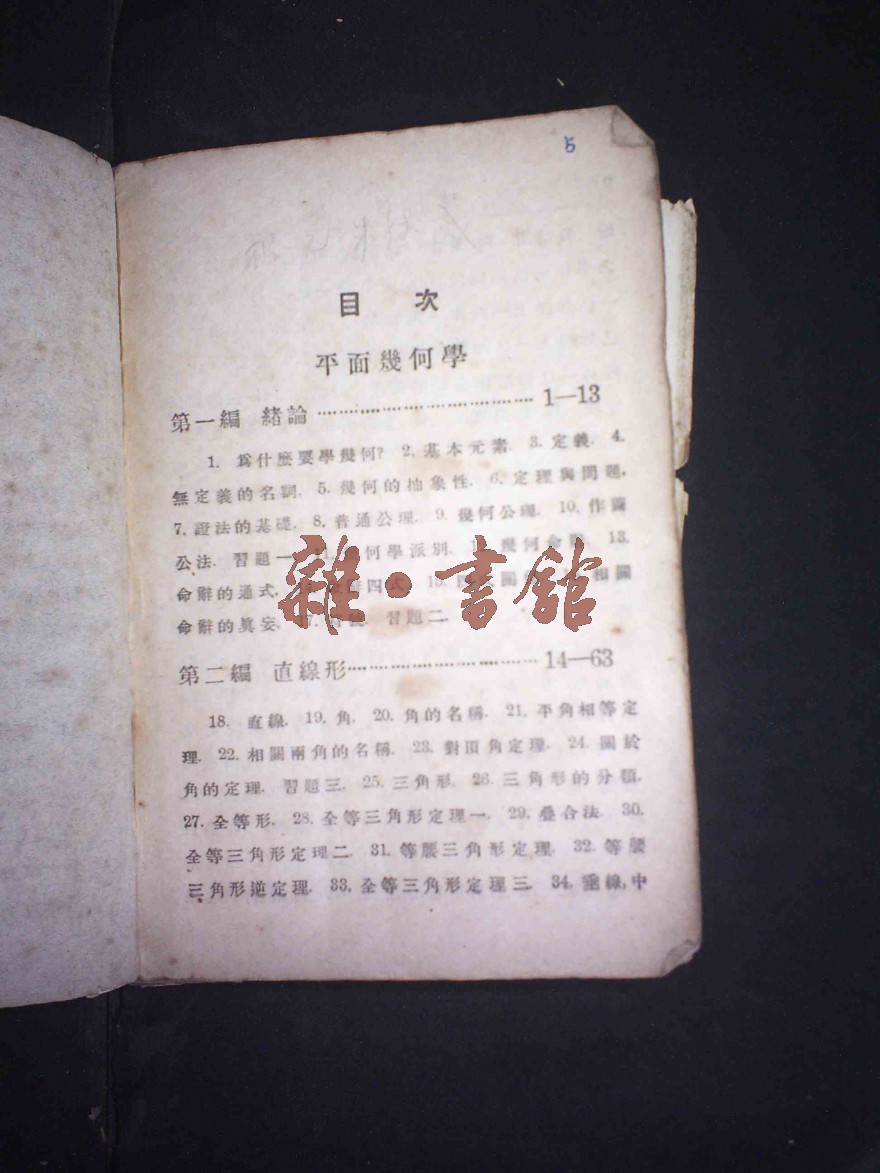 5
目 次
平面幾何學
第一編 緒論 1—13
1. 爲什麽要學幾何? 2. 基本元素. 3. 定義. 4.
無定義的名詞. 5. 幾何的抽象性. 6. 定理與問題.
7. 證法的基礎. 8. 普通公理. 9. 幾何公理. 10. 作圖
公法. 習題一. 11. 幾何學派別. 幾何命辭. 13.
命辭的通式. 四式. 15. 相關
命辭的眞妄. 17. 習題二.
雜·書館
第二編 直線形 14—63
18. 直線. 19. 角. 20. 角的名稱. 21. 平角相等定
理. 22. 相關兩角的名稱. 23. 對頂角定理. 24. 關於
角的定理. 習題三. 25. 三角形. 26. 三角形的分類.
27. 全等形. 28. 全等三角形定理一. 29. 疊合法. 30.
全等三角形定理二. 31. 等腰三角形定理. 32. 等腰
三角形逆定理. 33. 全等三角形定理三. 34. 垂線,中